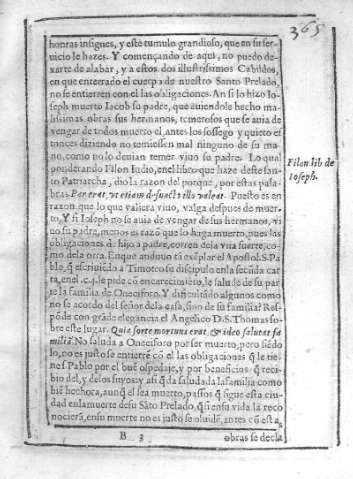 365
honras insignes, y este tumulo grandioso, que en su ser-
uicio le hazes. Y començando de aqui, no puedo de-
xarte de alabar, y a estos dos illustrissimos Cabildos,
en que enterrado el cuerpo de nuestro Santo Prelado,
no se entierren con el las obligaciones. An si lo hizo Io-
seph muerto Iacob su padre, que auiendole hecho ma-
lissimas obras sus hermanos, temerosos que se auia de
vengar de todos muerto el, antes los sossego y quieto en
tonces diziendo no temiessen mal ninguno de su ma-
no, como no lo deuian temer viuo su padre. Lo qual
ponderando Filon Iudio, en el libro que haze deste san-
to Patriarcha, dio la razon del porque, por estas pala-
bras. Par erat, vt etiam
valeat. Puesto es en
razon, que lo que valiera viuo, valga despues de muer-
to. Y si Ioseph no se auia de vengar de sus hermanos, vi
uo su padre, menos es razõ que lo haga muerto, pues las
obligaciones q̃ hijo a padre, corren de la vna suerte, co-
mo de la otra. En que anduuo tã exẽplar el Apostol S. Pa
blo, q̃ escriuiẽdo a Timoteo su discipulo en la segũda car
ta, en el .c.4. le pide cõ encarecimiẽto, le salude de su par
te la familia de Onesiforo. Y dificultãdo algunos como
no se acordo del señor dela casa, sino de su familia? Res-
põde con grãde elegancia el Angelico D. S. Thomas so-
bre este lugar. Quia forte mortuus erat, & ideo salutat fa
miliã. No saluda a Onesiforo por ser muerto, pero siẽdo
lo, no es justo se entierrẽ cõ el las obligaciones q̃ le tie-
ne S. Pablo por el buẽ ospedaje, y por beneficios q̃ reci-
bio del, y delos suyos: y asi q̃da saludada la familia como
biẽ hechora, aunq̃ el sea muerto, passos q̃ sigue esta ciu-
dad en la muerte de su Sãto Prelado, q̃ si en su vida la reco
nociera, en su muerte no es justo se oluide, antes cõ esta
B 3 obras se decla
Filon lib de
Ioseph.